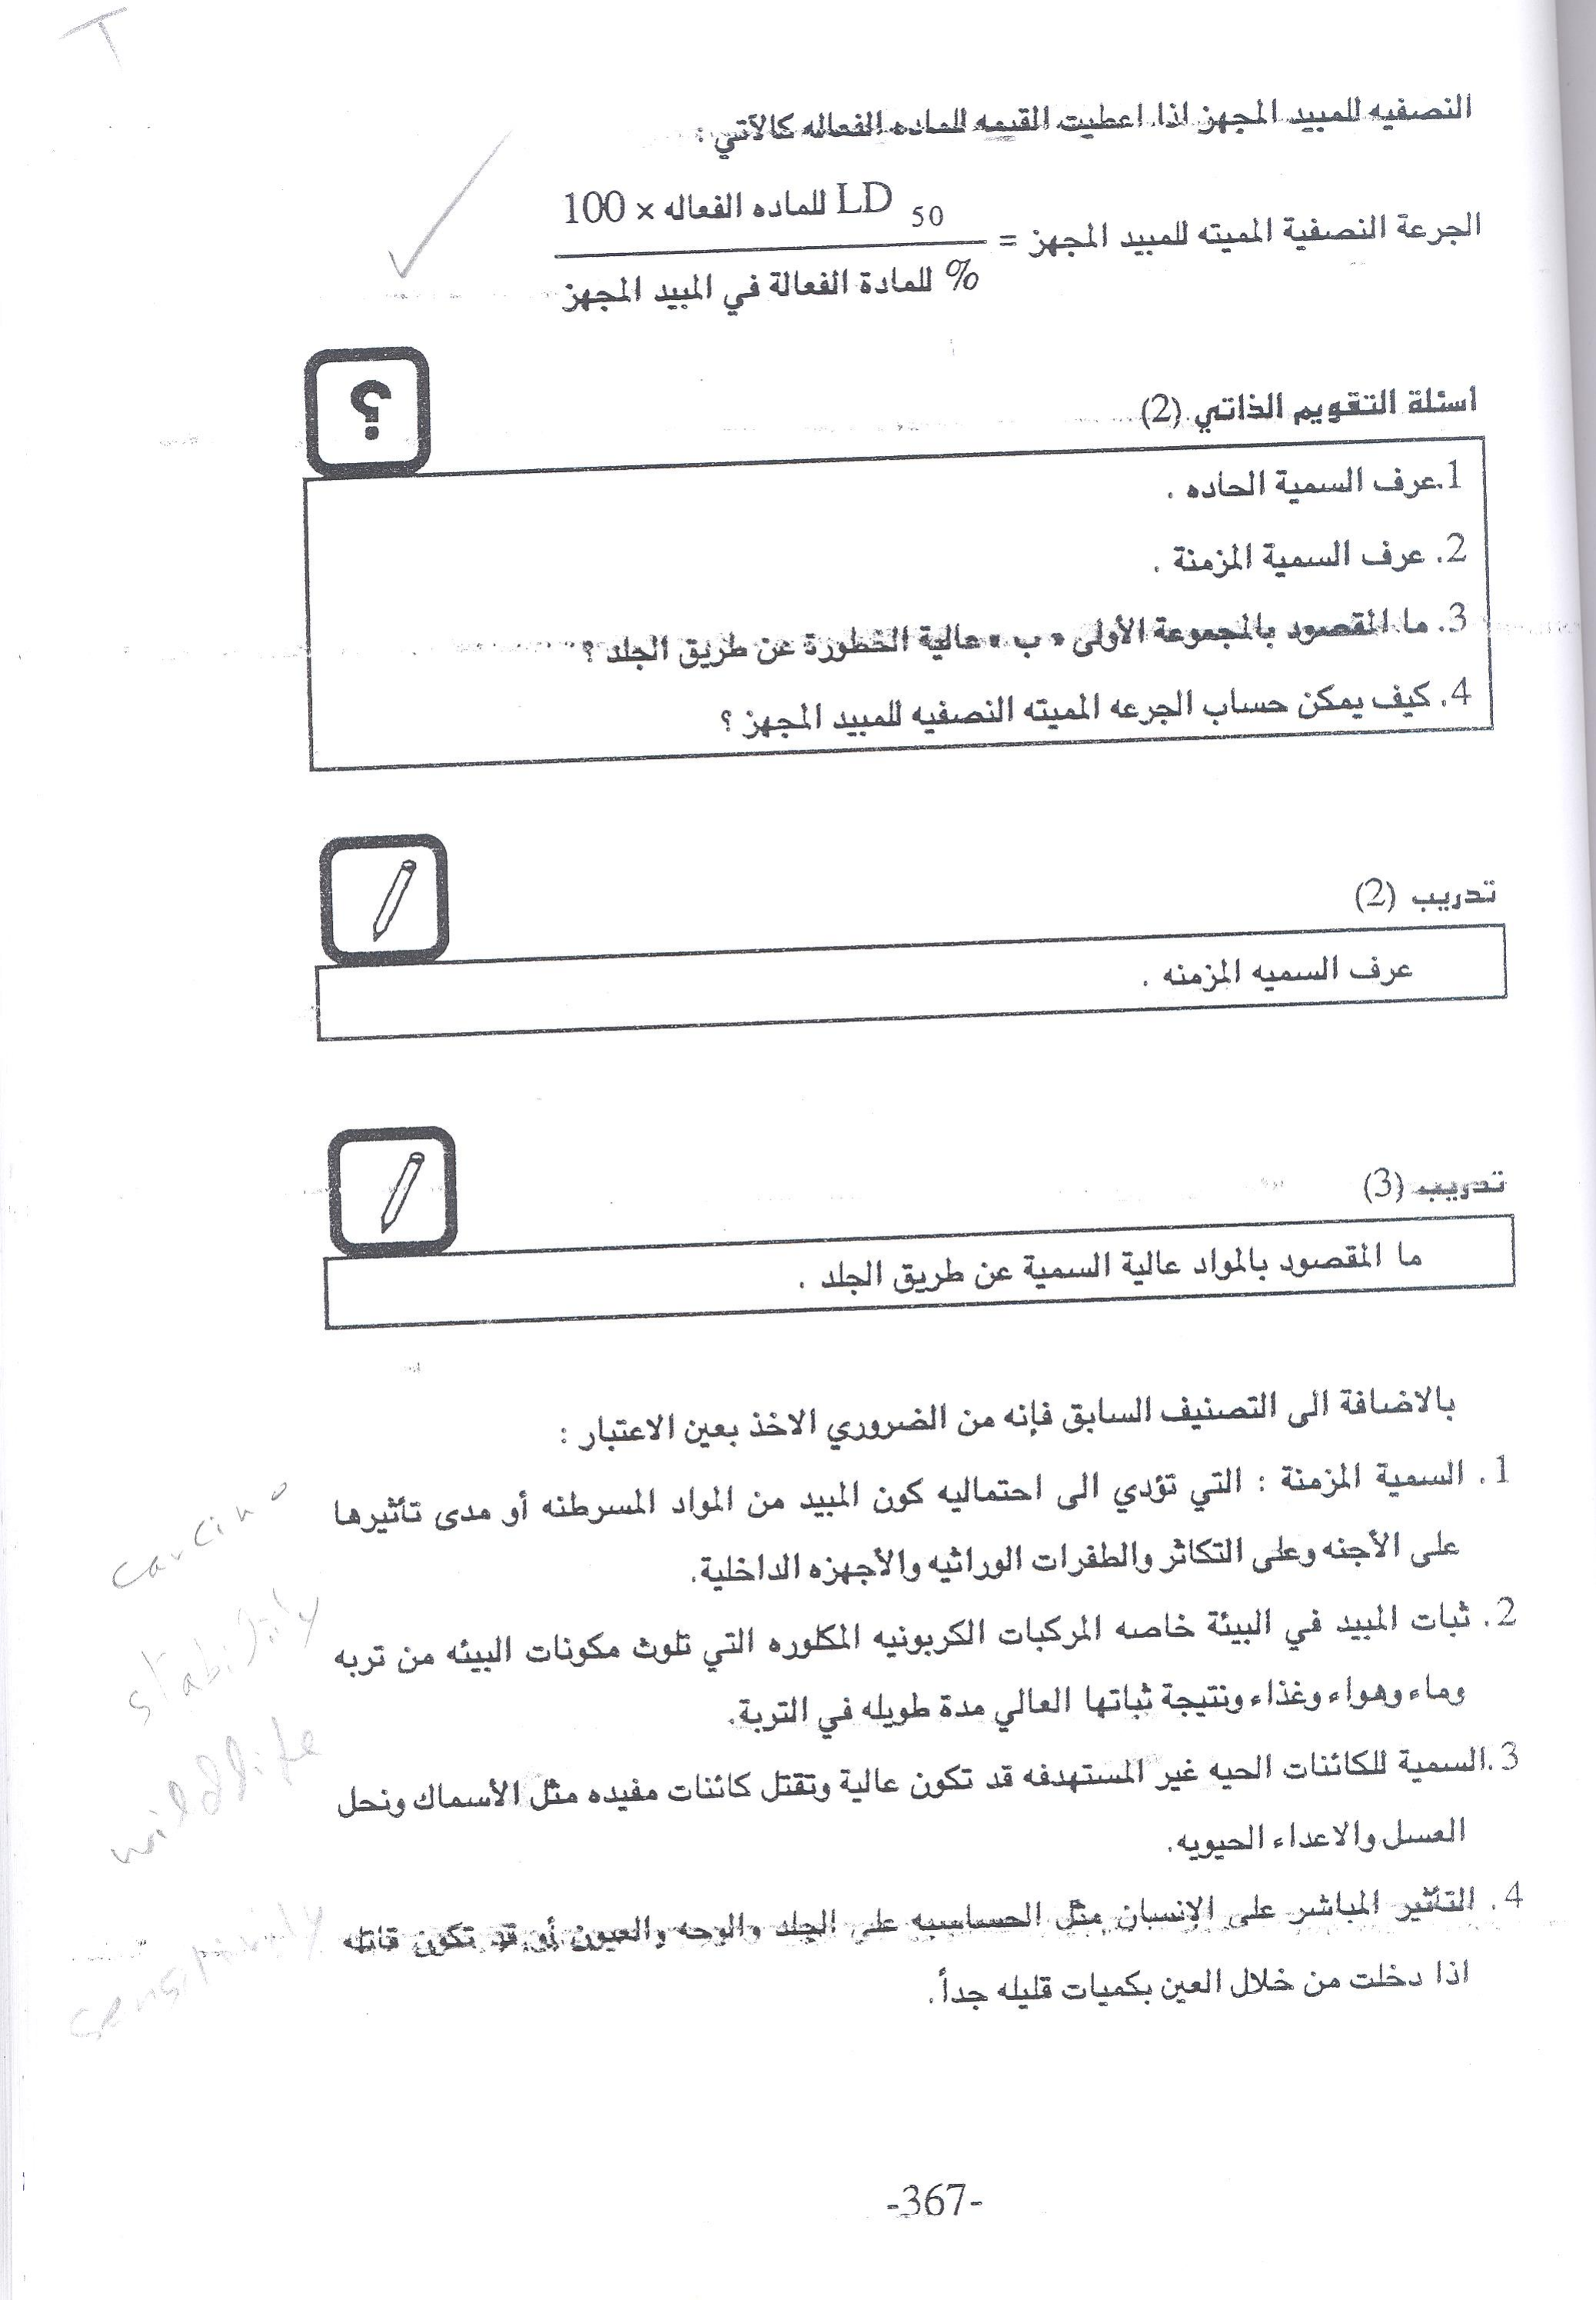 النصفيه للمبيد المجهز اذا اعطيت القيمه للماده الفعاله كالآتي :
الجرعة النصفية المميته للمبيد المجهز = LD 50 للماده الفعاله × 100
% للمادة الفعالة في المبيد المجهز
؟
اسئلة التقويم الذاتي (2)
1.عرف السمية الحاده .
2. عرف السمية المزمنة .
3. ما المقصود بالمجموعة الأولى « ب » عالية الخطورة عن طريق الجلد ؟
4. كيف يمكن حساب الجرعه المميته النصفيه للمبيد المجهز ؟
تدريب (2)
عرف السميه المزمنه .
تدريب (3)
ما المقصود بالمواد عالية السمية عن طريق الجلد .
بالاضافة الى التصنيف السابق فإنه من الضروري الاخذ بعين الاعتبار :
1. السمية المزمنة : التي تؤدي الى احتماليه كون المبيد من المواد المسرطنه أو مدى تأثيرها
على الأجنه وعلى التكاثر والطفرات الوراثيه والأجهزه الداخلية.
2. ثبات المبيد في البيئة خاصه المركبات الكربونيه المكلوره التي تلوث مكونات البيئه من تربه
وماء وهواء وغذاء ونتيجة ثباتها العالي مدة طويله في التربة.
3.السمية للكائنات الحيه غير المستهدفه قد تكون عالية وتقتل كائنات مفيده مثل الأسماك ونحل
العسل والاعداء الحيويه.
4. التأثير المباشر على الإنسان مثل الحساسيه على الجلد والوجه والعيون أو قد تكون قاتله
اذا دخلت من خلال العين بكميات قليله جداً.
carcino
stability
wildlife
sensitivity
-367-